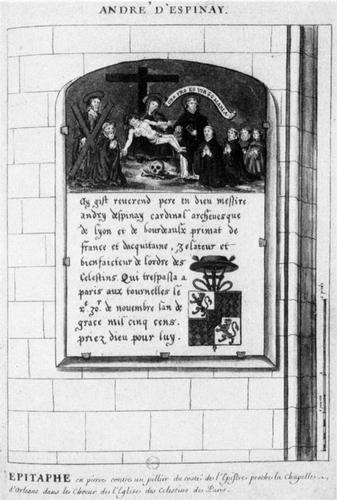 ANDRÉ D'ESPINAY.
ORA PRO
VIRGO MARIA
Cy gist reuerend pere en dieu messire
andry despinay cardinal archeuesque
de lyon et de bourdeaulx primat de
france et dacquitaine, zelateur et
bienfaicteur de lordre des
Celestins. Qui trespassa a
paris aux tournelles le
xe. Jo. de nouembre lan de
grace mil cinq cens.
priez dieu pour luy.
EPITAPHE en pierre contre un pillier du costé de l'Epistre proche la Chapelle
d'Orleans dans le Choeur de l'Eglise des Celestins de Paris.